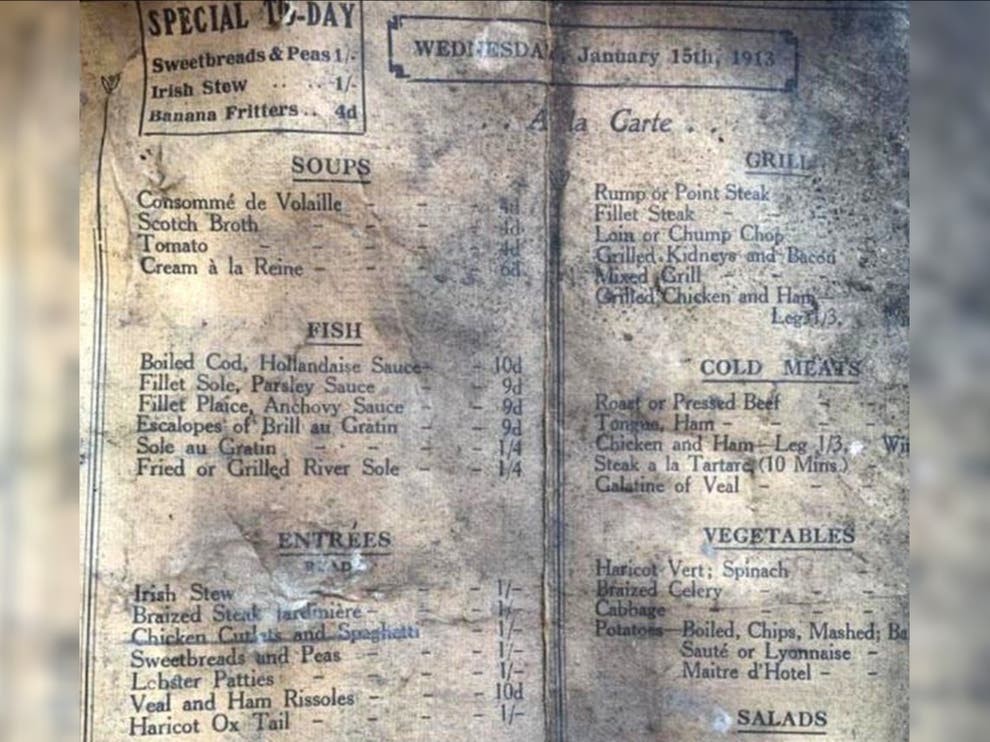 SPECIAL TO-DAY
Sweetbreads & Peas 1/-
Irish Stew .. .. 1/-
Banana Fritters .. 4d
WEDNESDAY, January 15th, 1913
. . A la Carte . .
SOUPS
Consommé de Volaille - - 4d
Scotch Broth - - - 4d
Tomato - - - - 4d
Cream à la Reine - - - 6d
FISH
Boiled Cod, Hollandaise Sauce - - 10d
Fillet Sole, Parsley Sauce - - 9d
Fillet Plaice, Anchovy Sauce - - 9d
Escalopes of Brill au Gratin - - 9d
Sole au Gratin - - - - 1/4
Fried or Grilled River Sole - - 1/4
ENTRÉES
READY
Irish Stew - - - - 1/-
Braized Steak Jardinière - - - 1/-
Chicken Cutlets and Spaghetti - 1/-
Sweetbreads and Peas - - - 1/-
Lobster Patties - - - - 1/-
Veal and Ham Rissoles - - - 10d
Haricot Ox Tail - - - - 1/-
GRILL
Rump or Point Steak
Fillet Steak - -
Loin or Chump Chop
Grilled Kidneys and Bacon
Mixed Grill - - -
Grilled Chicken and Ham
Leg 1/3.
COLD MEATS
Roast or Pressed Beef - -
Tongue, Ham - - - -
Chicken and Ham—Leg 1/3. Wi
Steak a la Tartare (10 Mins.) -
Galatine of Veal - - -
VEGETABLES
Haricot Vert; Spinach -
Braized Celery - - -
Cabbage - - -
Potatoes—Boiled, Chips, Mashed; Ba
Sauté or Lyonnaise -
Maitre d'Hotel - -
SALADS